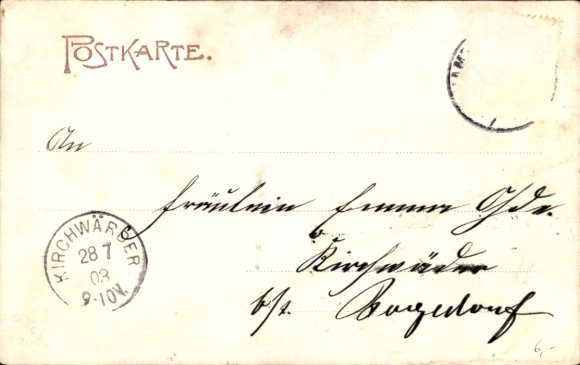 POSTKARTE.
An
Fräulein Emma Ohde.
Kirchwärder
KIRCHWÄRDER
28 7
03
9-10V.
b/. Bergedorf
6,-